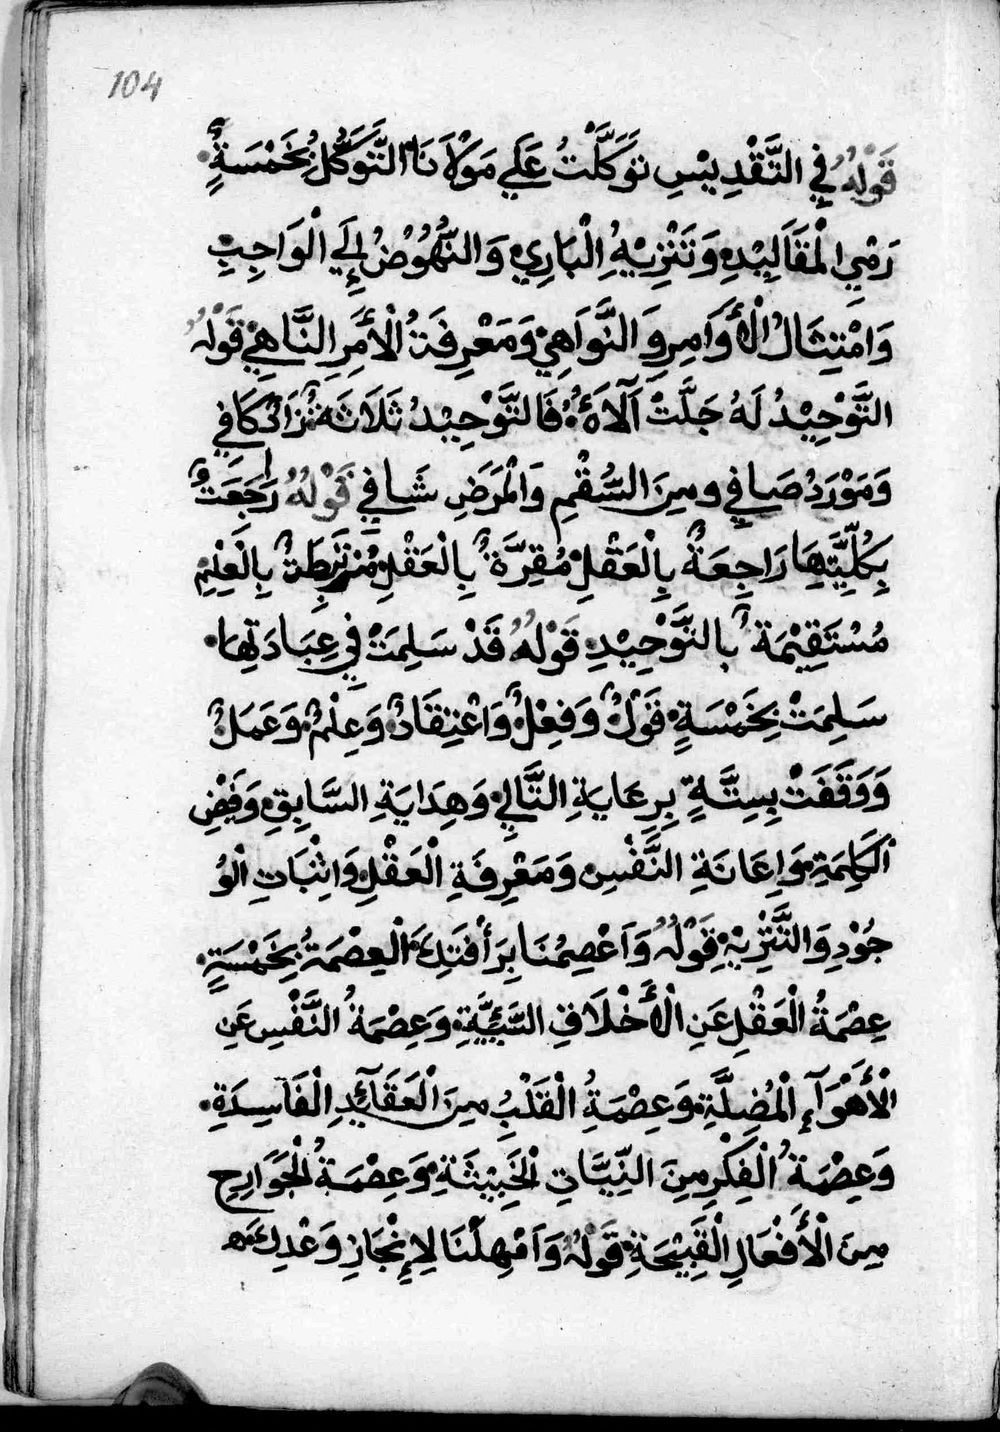 104
قَوْلُهُ فِي التَّقْدِيْسِ تَوَكَّلْتُ عَلَي مَوْلَانَا التَّوَكُّلُ بِخَمْسَةٍ
رَمْيِ الْمَقَالِيْدِ وَتَنْزِيْهِ الْبَارِي وَالنُّهُوْضُ إِلَي الْوَاجِبِ
وَامْتِثَالُ الْأَوَامِرِ وَالنَّوَاهِيْ وَمَعْرِفَةُ الْأَمِرِ النَّاهِيْ قَوْلُهُ
التَّوْحِيْدُ لَهُ جَلَّتْ آلَآهُ فَالتَّوْحِيْدُ ثَلَاثَةٌ كَافِي
وَمَوْرَدْ صَافِي ومِنَ السُّقْمِ وَالْمَرَضِ شَافِي قَوْلُهُ رَاجَعَتْ
بِكُلِّيَّتِهَا رَاجِعَةٌ بِالْعَقْلِ مُقِرَّةٌ بِالْعَقْلِ مُرْتَبِطَةٌ بِالْعِلْمِ
مُسْتَقِيْمَةٌ بالتَّوْحِيْدِ قَوْلُهُ قَدْ سَلِمَتْ فِي عِبَادَتِهَا
سَلِمَتْ بِخَمْسَةٍ قَوْلٌ وَفِعْلٌ وَاعْتِقَادٌ وَعِلْمٌ وَعَمَلٌ
وَوَقَفَتْ بِسِتَّةٍ بِرِعَايَةِ التَّالِي وَهِدَايَةِ السَّابِقِ وَفَيْضِ
الْكَلِمَةِ وَإِعَانَةِ النَّفْسِ وَمَعْرِفَةِ الْعَقْلِ وَاثِبَاتِ الْوُ
جُوْدِ وَالتَّنْزِيْهِ قَوْلُهُ وَاَعْصِمْنَا بِرَأْفَتِكَ الْعِصْمَةُ بِخَمْسَةٍ
عِصْمَةُ الْعَقْلِ عَنِ الْأَخْلَاقِ السَّيِّئَةِ وَعِصْمَةُ النَّفْسِ عَنِ
الْأَهْوَآءِ الْمُضِلَّةِ وَعِصْمَةُ الْقَلْبِ مِنَ الْعَقَآئِدِ الْفَاسِدَةِ
وَعِصْمَةُ الْفِكْرِ مِنَ النِّيَّاتِ الْخَبِيْثَةِ وَعِصْمَةُ الْجَوَارِحِ
مِنَ الْأَفْعَالِ الْقَبِيْحَةِ قَوْلُهُ وَاَمْهِلْنَا لِإِنْجَازِ وَعْدِكَ